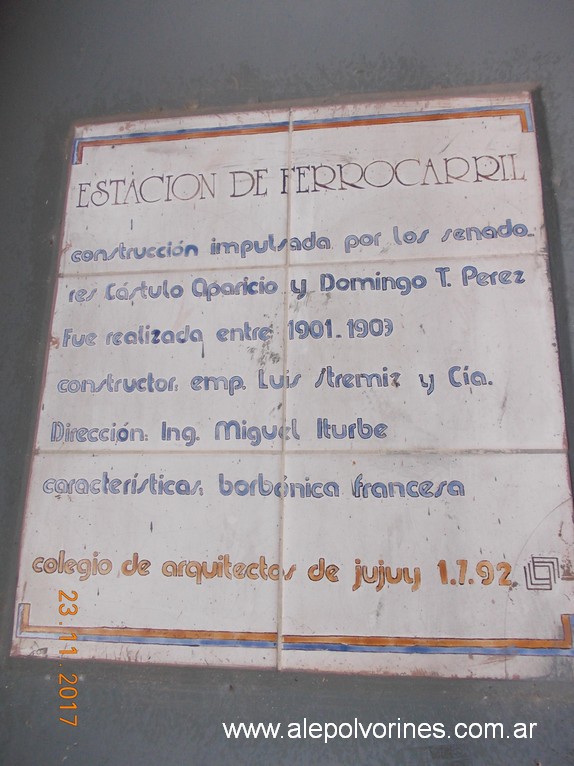 ESTACION DE FERROCARRIL
construcción impulsada por los senado-
res Cástulo Aparicio y Domingo T. Perez
Fue realizada entre 1901-1903
constructor: emp. Luis Stremiz y Cía.
Dirección: Ing. Miguel Iturbe
características: borbónica francesa
colegio de arquitectos de jujuy 1.7.92.
23.11.2017
www.alepolvorines.com.ar